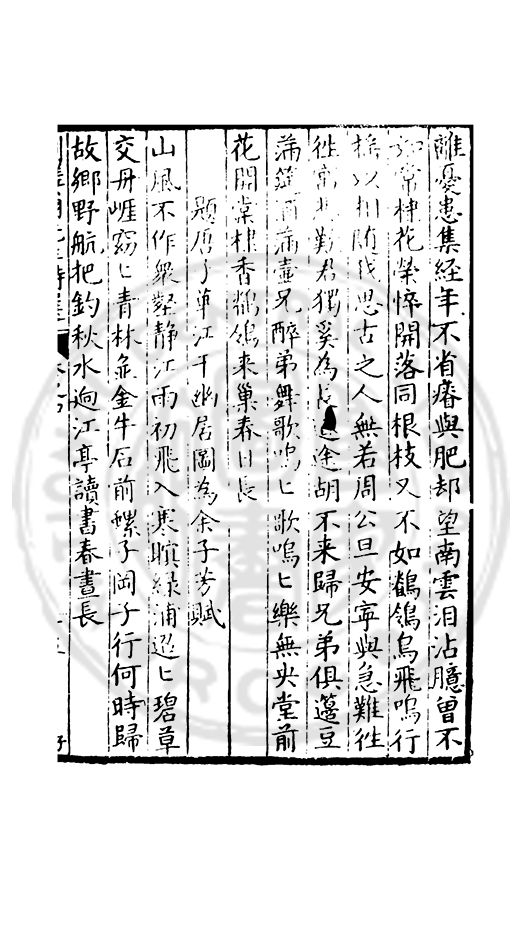 離憂患集經年不省瘠與肥却望南雲淚沾臆曾不
如常棣花榮悴開落同根枝又不如鶺鴒烏飛鳴行
搖以相隨我思古之人無若周公旦安寧與急難往
往常勤君獨奚為長途胡不来歸兄弟俱籩豆
滿筵酒滿壺兄醉弟舞歌嗚匕歌嗚匕樂無央堂前
花開棠棣香鶺鴒来巢春日長
題唐子華江干幽居圖為余子芳賦
山風不作衆壑静江雨初飛入寒暝緑浦迢匕碧草
交丹崕窈匕青林並金牛石前螺子岡子行何時歸
故郷野航把釣秋水逈江亭讀書春晝長